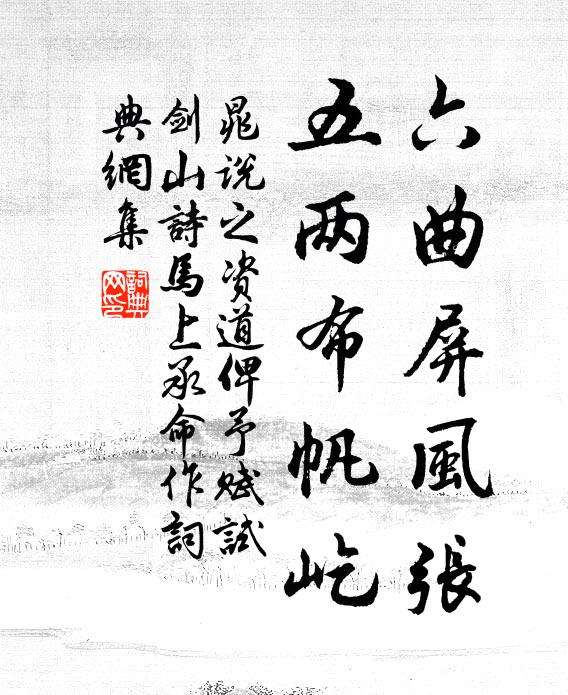 六曲屏風張
五两布帆屹
晁说之资道俾予赋試
剑山詩馬上承命作詞
典網集
詞典
网印